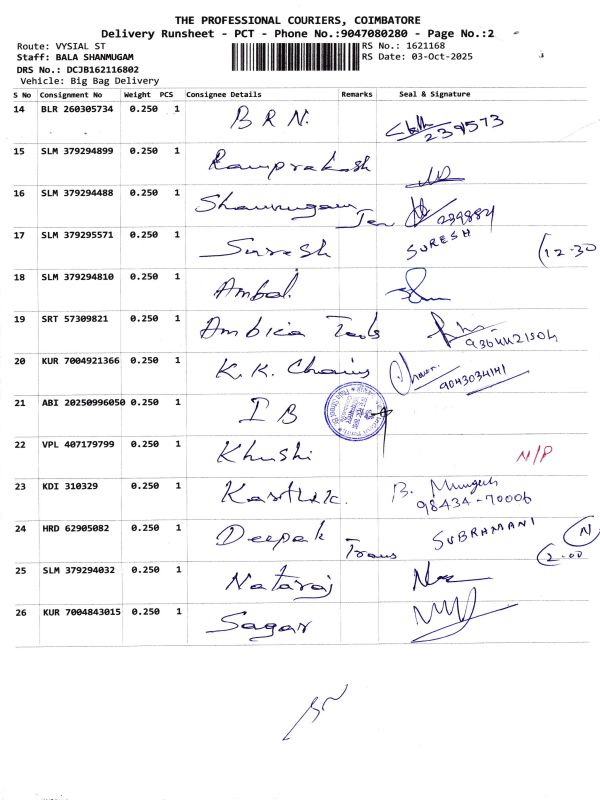 THE PROFESSIONAL COURIERS, COIMBATORE
Delivery Runsheet - PCT - Phone No.:9047080280 - Page No.:2
Route: VYSIAL ST
RS No.: 1621168
Staff: BALA SHANMUGAM
RS Date: 03-Oct-2025
DRS No.: DCJB162116802
Vehicle: Big Bag Delivery
S No Consignment No Weight PCS Consignee Details Remarks Seal & Signature
14 BLR 260305734 0.250 1 B R N. 239573
15 SLM 379294899 0.250 1 Ramprakash
16 SLM 379294488 0.250 1 Shanmugam 239884
17 SLM 379295571 0.250 1 Suresh SURESH (12-30
18 SLM 379294810 0.250 1 Ambal.
19 SRT 57309821 0.250 1 Ambica Tools 9364421504
20 KUR 7004921366 0.250 1 K. K. Chains 9043034141
21 ABI 20250996050 0.250 1 I B
22 VPL 407179799 0.250 1 Khushi N/P
23 KDI 310329 0.250 1 Karthik. B. Murugesh
98434-70006
24 HRD 62905082 0.250 1 Deepak Trans SUBRAMANI N
2.00
25 SLM 379294032 0.250 1 Nataraj
26 KUR 7004843015 0.250 1 Sagar